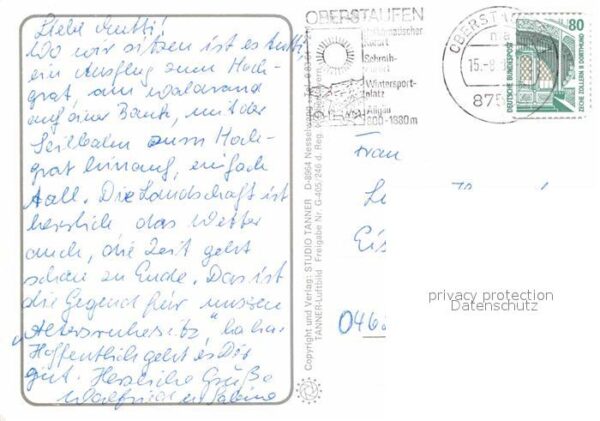 Liebe Mutti!
Wo wir sitzen ist es
ein Ausflug zum Hoch-
grat, am Waldrand
auf einer Bank, mit der
Seilbahn zum Hoch-
grat hinauf, einfach
toll. Die Landschaft ist
herrlich das Wetter
auch, die Zeit geht
schon zu Ende. Das ist
die Gegend für unseren
„Altersruhesitz", ha ha.
Hoffentlich geht es Dir
gut. Herzliche Grüße
Sabine
Copyright und Verlag: STUDIO TANNER D-8964 Nesselwang
TANNER-Luftbild Freigabe Nr. G-405/246 d. Reg.
OBERSTAUFEN
Schroth-
kurort
Wintersport-
platz
Allgäu
800-1880m
OBERST
15.-8
875
80
DEUTSCHE BUNDESPOST
ZECHE ZOLLERN II DORTMUND
Frau
Eis
046
privacy protection
Datenschutz